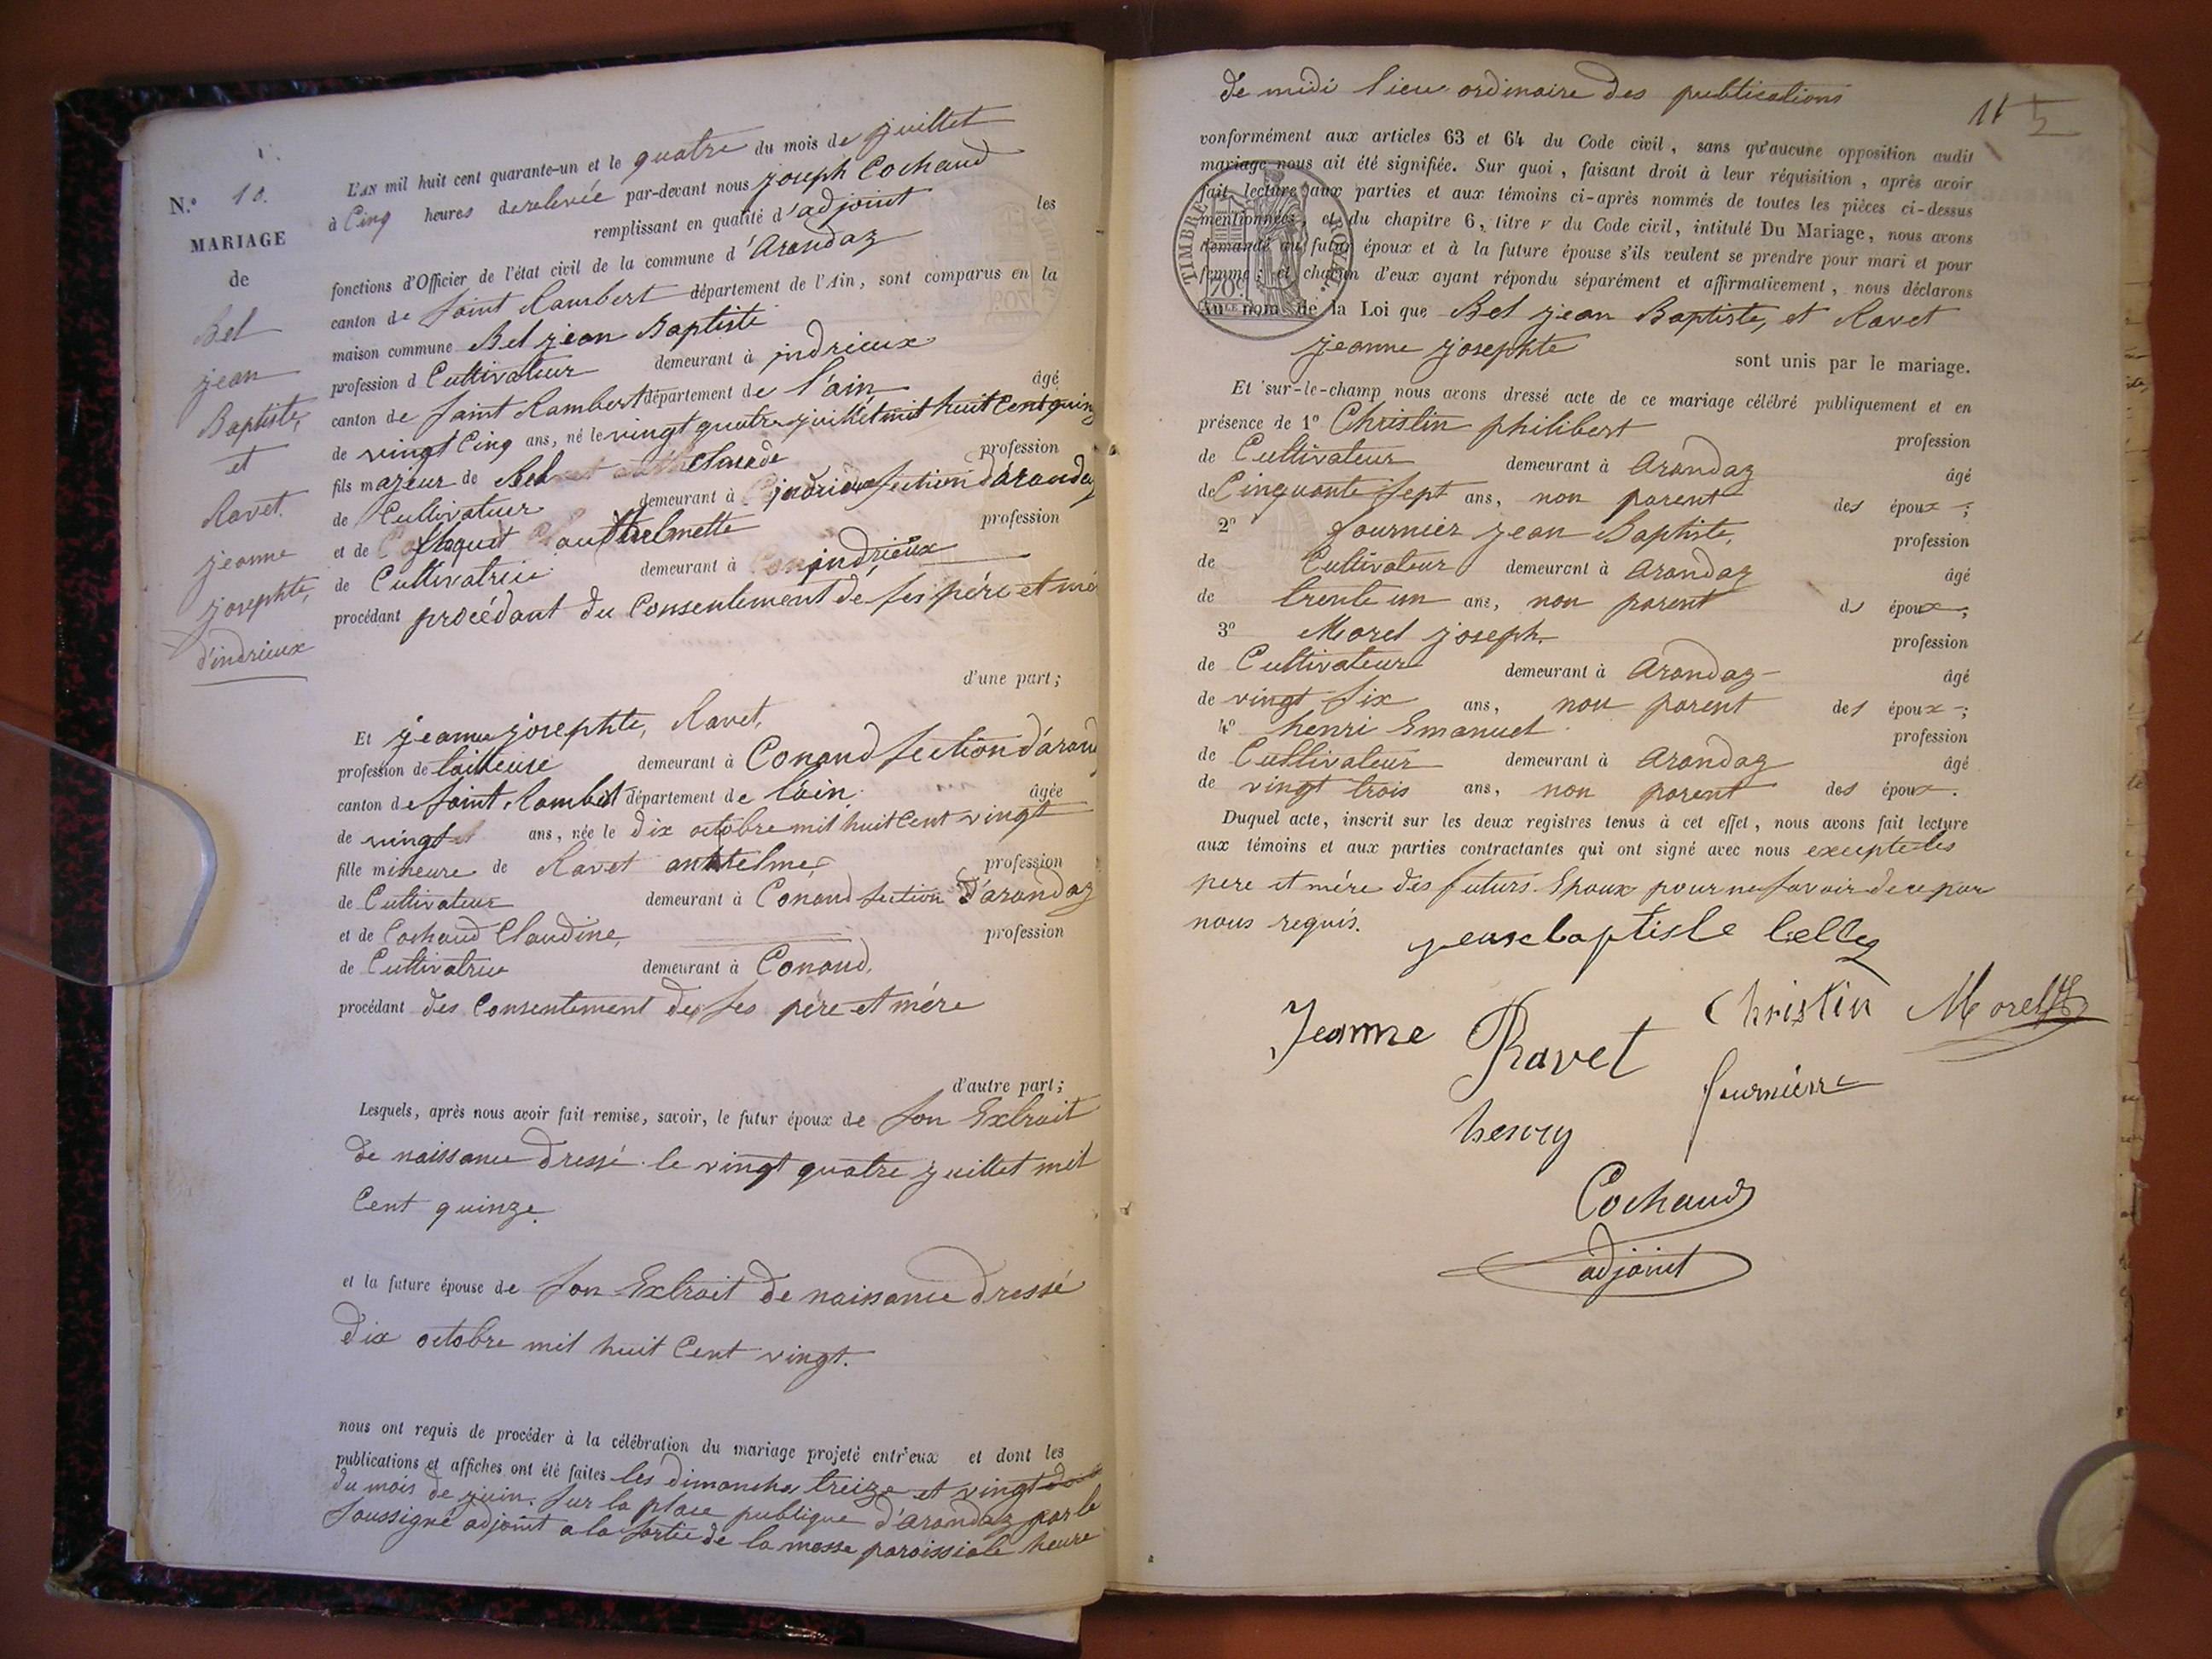 N.º 10.
MARIAGE
de
Bel
jean
Baptiste,
et
Ravet.
jeanne
josephte,
d'indrieux
L'AN mil huit cent quarante-un et le quatre du mois de juillet
à Cinq heures derelevée par-devant nous joseph Cochaud
remplissant en qualité d'adjoint les
fonctions d'Officier de l'état civil de la commune d'Arandaz
canton de Saint Rambert département de l'Ain, sont comparus en la
maison commune Bel jean Baptiste
profession d Cultivateur demeurant à jndrieux
canton de Saint Rambert département de l'ain âgé
de vingt Cinq ans, né le vingt quatre juillet mil huit Cent quinz
fils majeur de Bel Claude profession
de Cultivateur demeurant à jndrieux section d'Arandaz
et de thelmette profession
de Cultivatrice demeurant à jndrieux
procédant procédant du Consentement de ses père et mè
d'une part;
Et jeanne josephte, Ravet,
profession de tailleuse demeurant à Conand section d'arand
canton de Saint Rambert département de lain. âgée
de vingt ans, née le dix octobre mil huit Cent vingt
fille mineure de Ravet anthelme, profession
de Cultivateur demeurant à Conand section D'arandaz
et de Cochaud Claudine, profession
de Cultivatrice demeurant à Conand,
procédant des Consentement des ses père et mère
d'autre part;
Lesquels, après nous avoir fait remise, savoir, le futur époux de son Extrait
de naissance dressé le vingt quatre juillet mil
Cent quinze.
et la future épouse de son Extrait de naissance dressé
dix octobre mil huit Cent vingt.
nous ont requis de procéder à la célébration du mariage projeté entr'eux et dont les
publications et affiches ont été faites les dimanches treize et vingt
du mois de juin. sur la place publique d'arandaz par le
soussigné adjoint a la sortie de la messe paroissiale heure
de midi lieu ordinaire des publications
11
conformément aux articles 63 et 64 du Code civil, sans qu'aucune opposition audit
mariage nous ait été signifiée. Sur quoi, faisant droit à leur réquisition, après avoir
fait lecture aux parties et aux témoins ci-après nommés de toutes les pièces ci-dessus
mentionnées, et du chapitre 6, titre v du Code civil, intitulé Du Mariage, nous avons
demandé au futur époux et à la future épouse s'ils veulent se prendre pour mari et pour
femme; et chacun d'eux ayant répondu séparément et affirmativement, nous déclarons
Au nom de la Loi que Bel jean Baptiste, et Ravet
jeanne josephte sont unis par le mariage.
TIMBRE ROYAL
70c
Et sur-le-champ nous avons dressé acte de ce mariage célébré publiquement et en
présence de 1º Christin philibert profession
de Cultivateur demeurant à Arandaz âgé
de Cinquante sept ans, non parent des époux;
2º fournier jean Baptiste, profession
de Cultivateur demeurant à Arandaz âgé
de trente un ans, non parent ds époux;
3º Morel joseph. profession
de Cultivateur demeurant à Arandaz âgé
de vingt six ans, non parent des époux;
4º henri Emanuel profession
de Cultivateur demeurant à Arandaz âgé
de vingt trois ans, non parent des époux.
Duquel acte, inscrit sur les deux registres tenus à cet effet, nous avons fait lecture
aux témoins et aux parties contractantes qui ont signé avec nous excepté les
pere et mère des futurs Epoux pour ne savoir de ce par
nous requis.
Jeanne Ravet
Christin Morel
henry
Cochaud
adjoint